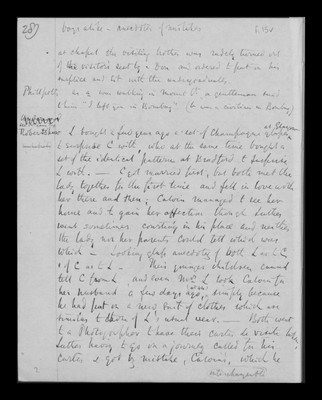 287
boys alike - anecdotes of mistakes
at chapel the visiting brother was rudely turned out
of the visitors seat by a Don and ordered to put on his
surplice and sit with the undergraduates
Phillpotts as a son walking in
him "I left you in Bombay" (he was a civilian in Bombay)
Robertshaw L bought a few years ago a set of champagne glasses at Glasgow
to surprise C with, who at the same time bought a
set of the identical pattern at Bradford to surprise
L with. — C got married first, but both met the
lady together for the first time and fell in love with
her there and then; Calvin managed to see her
home and to gain her affection though Luther
went sometimes courting in his place and neither
the lady nor her parents could tell which was
which — Looking glass anecdotes of both L as to C
& of C as to L - Their younger children cannot
tell C from L, and even Mrs C took Calvin for
her husband a few days ago, simply because
he had put on a new suit of clothes which was
similar to those of L's usual wear. — Both went
to a Photographer to have their cartes de visite taken
Luther having to go on a journey called for his
cartes & got by mistake, Calvin's, which he
interchangeable